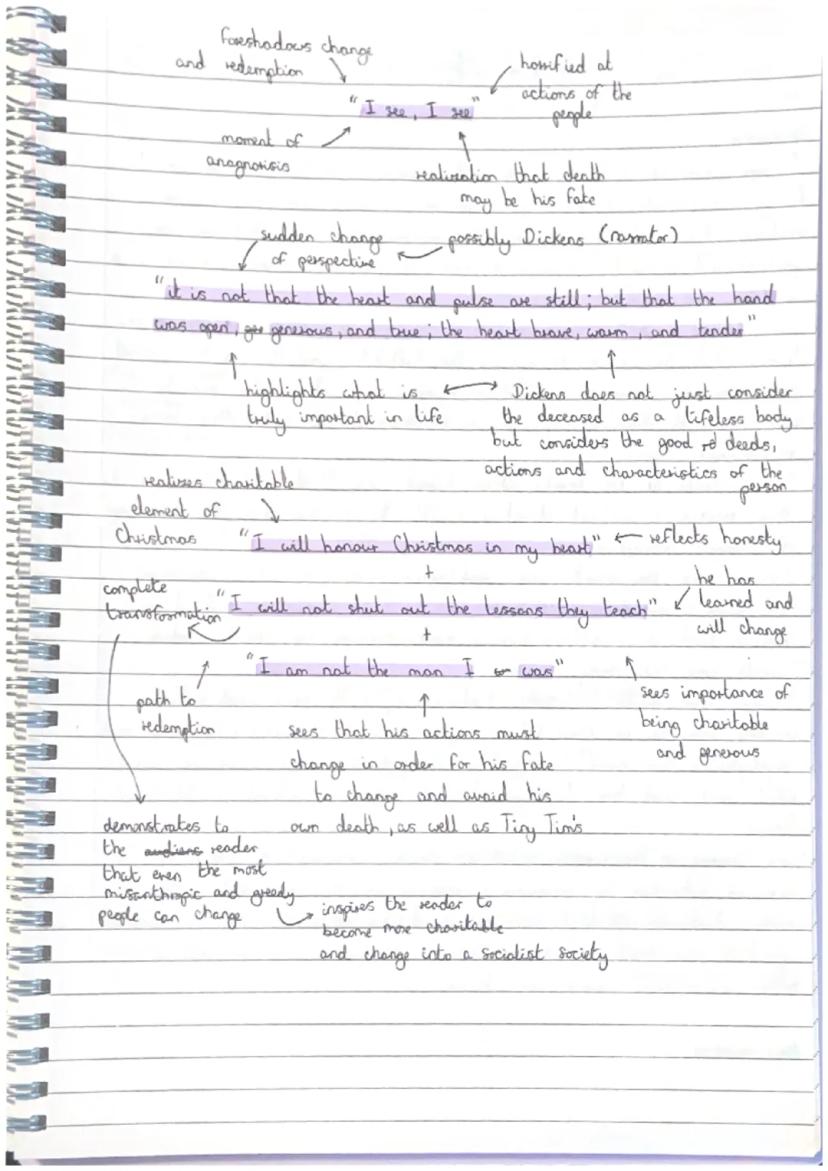 foreshadows change
and redemption
horrified at
actions of the
people
"I see, I see"
moment of
anagnorisis
realization that death
may be his fate
sudden change
of perspective
possibly Dickens (narrator)
"it is not that the heart and pulse are still; but that the hand
was open, generous, and true; the heart brave, warm, and tender"
highlights what is
truly important in life
Dickens does not just consider
the deceased as a lifeless body
but considers the good deeds,
actions and characteristics of the
person
realizes charitable
element of
Christmas
"I will honour Christmas in my heart"
reflects honesty
+
complete
transformation
"I will not shut out the lessons they teach"
he has
learned and
will change
+
"I am not the man I was"
path to
redemption
sees importance of
being charitable
and generous
sees that his actions must
change in order for his fate
to change and avoid his
own death, as well as Tiny Tim's
demonstrates to
the audience reader
that even the most
misanthropic and greedy
people can change
inspires the reader to
become more charitable
and change into a socialist society